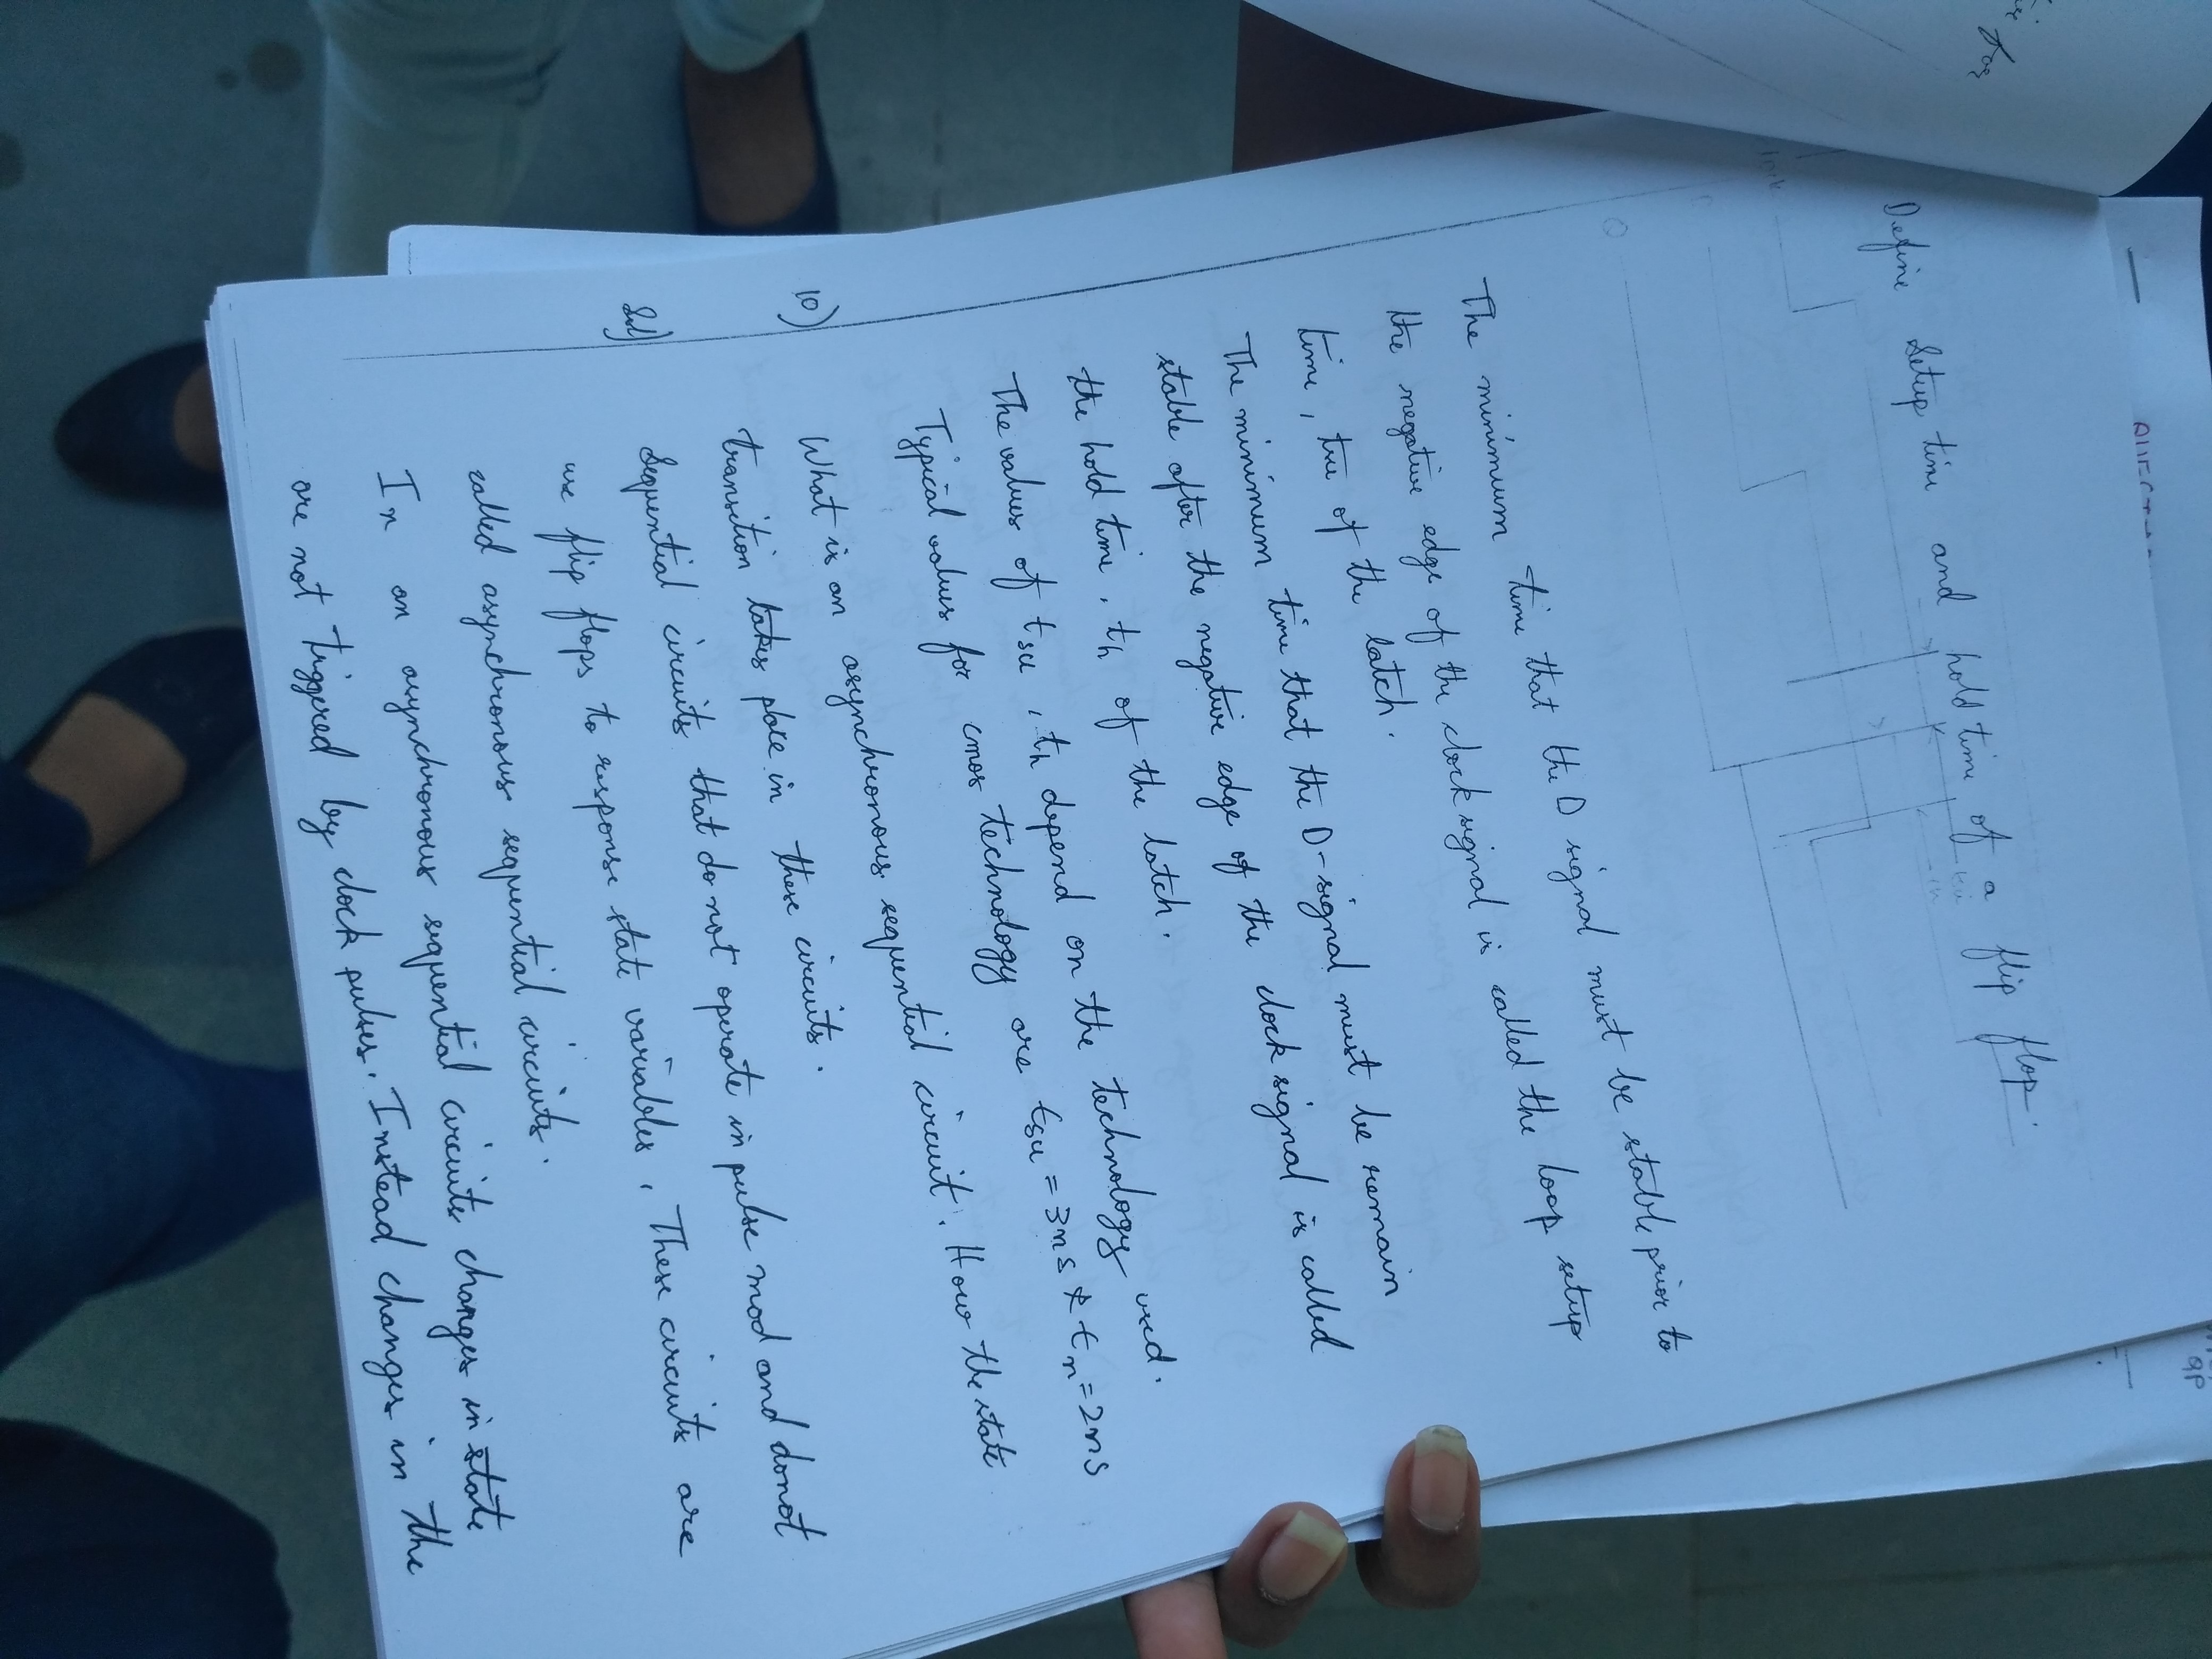 Define Setup time and hold time of a flip flop.
The minimum time that the D signal must be stable prior to
the negative edge of the clock signal is called the loop setup
time, tsu of the latch.
The minimum time that the D-signal must be remain
stable after the negative edge of the clock signal is called
the hold time, th of the latch.
The values of tsu, th depend on the technology used.
Typical values for cmos technology are tsu = 3ns & tn = 2ns
10) What is an asynchronous sequential circuit. How the state
transition takes place in these circuits.
Sol) Sequential circuits that do not operate in pulse mod and donot
use flip flops to response state variables, These circuits are
called asynchronous sequential circuits.
In an asynchronous sequential circuits changes in state
are not triggered by clock pulses. Instead changes in the